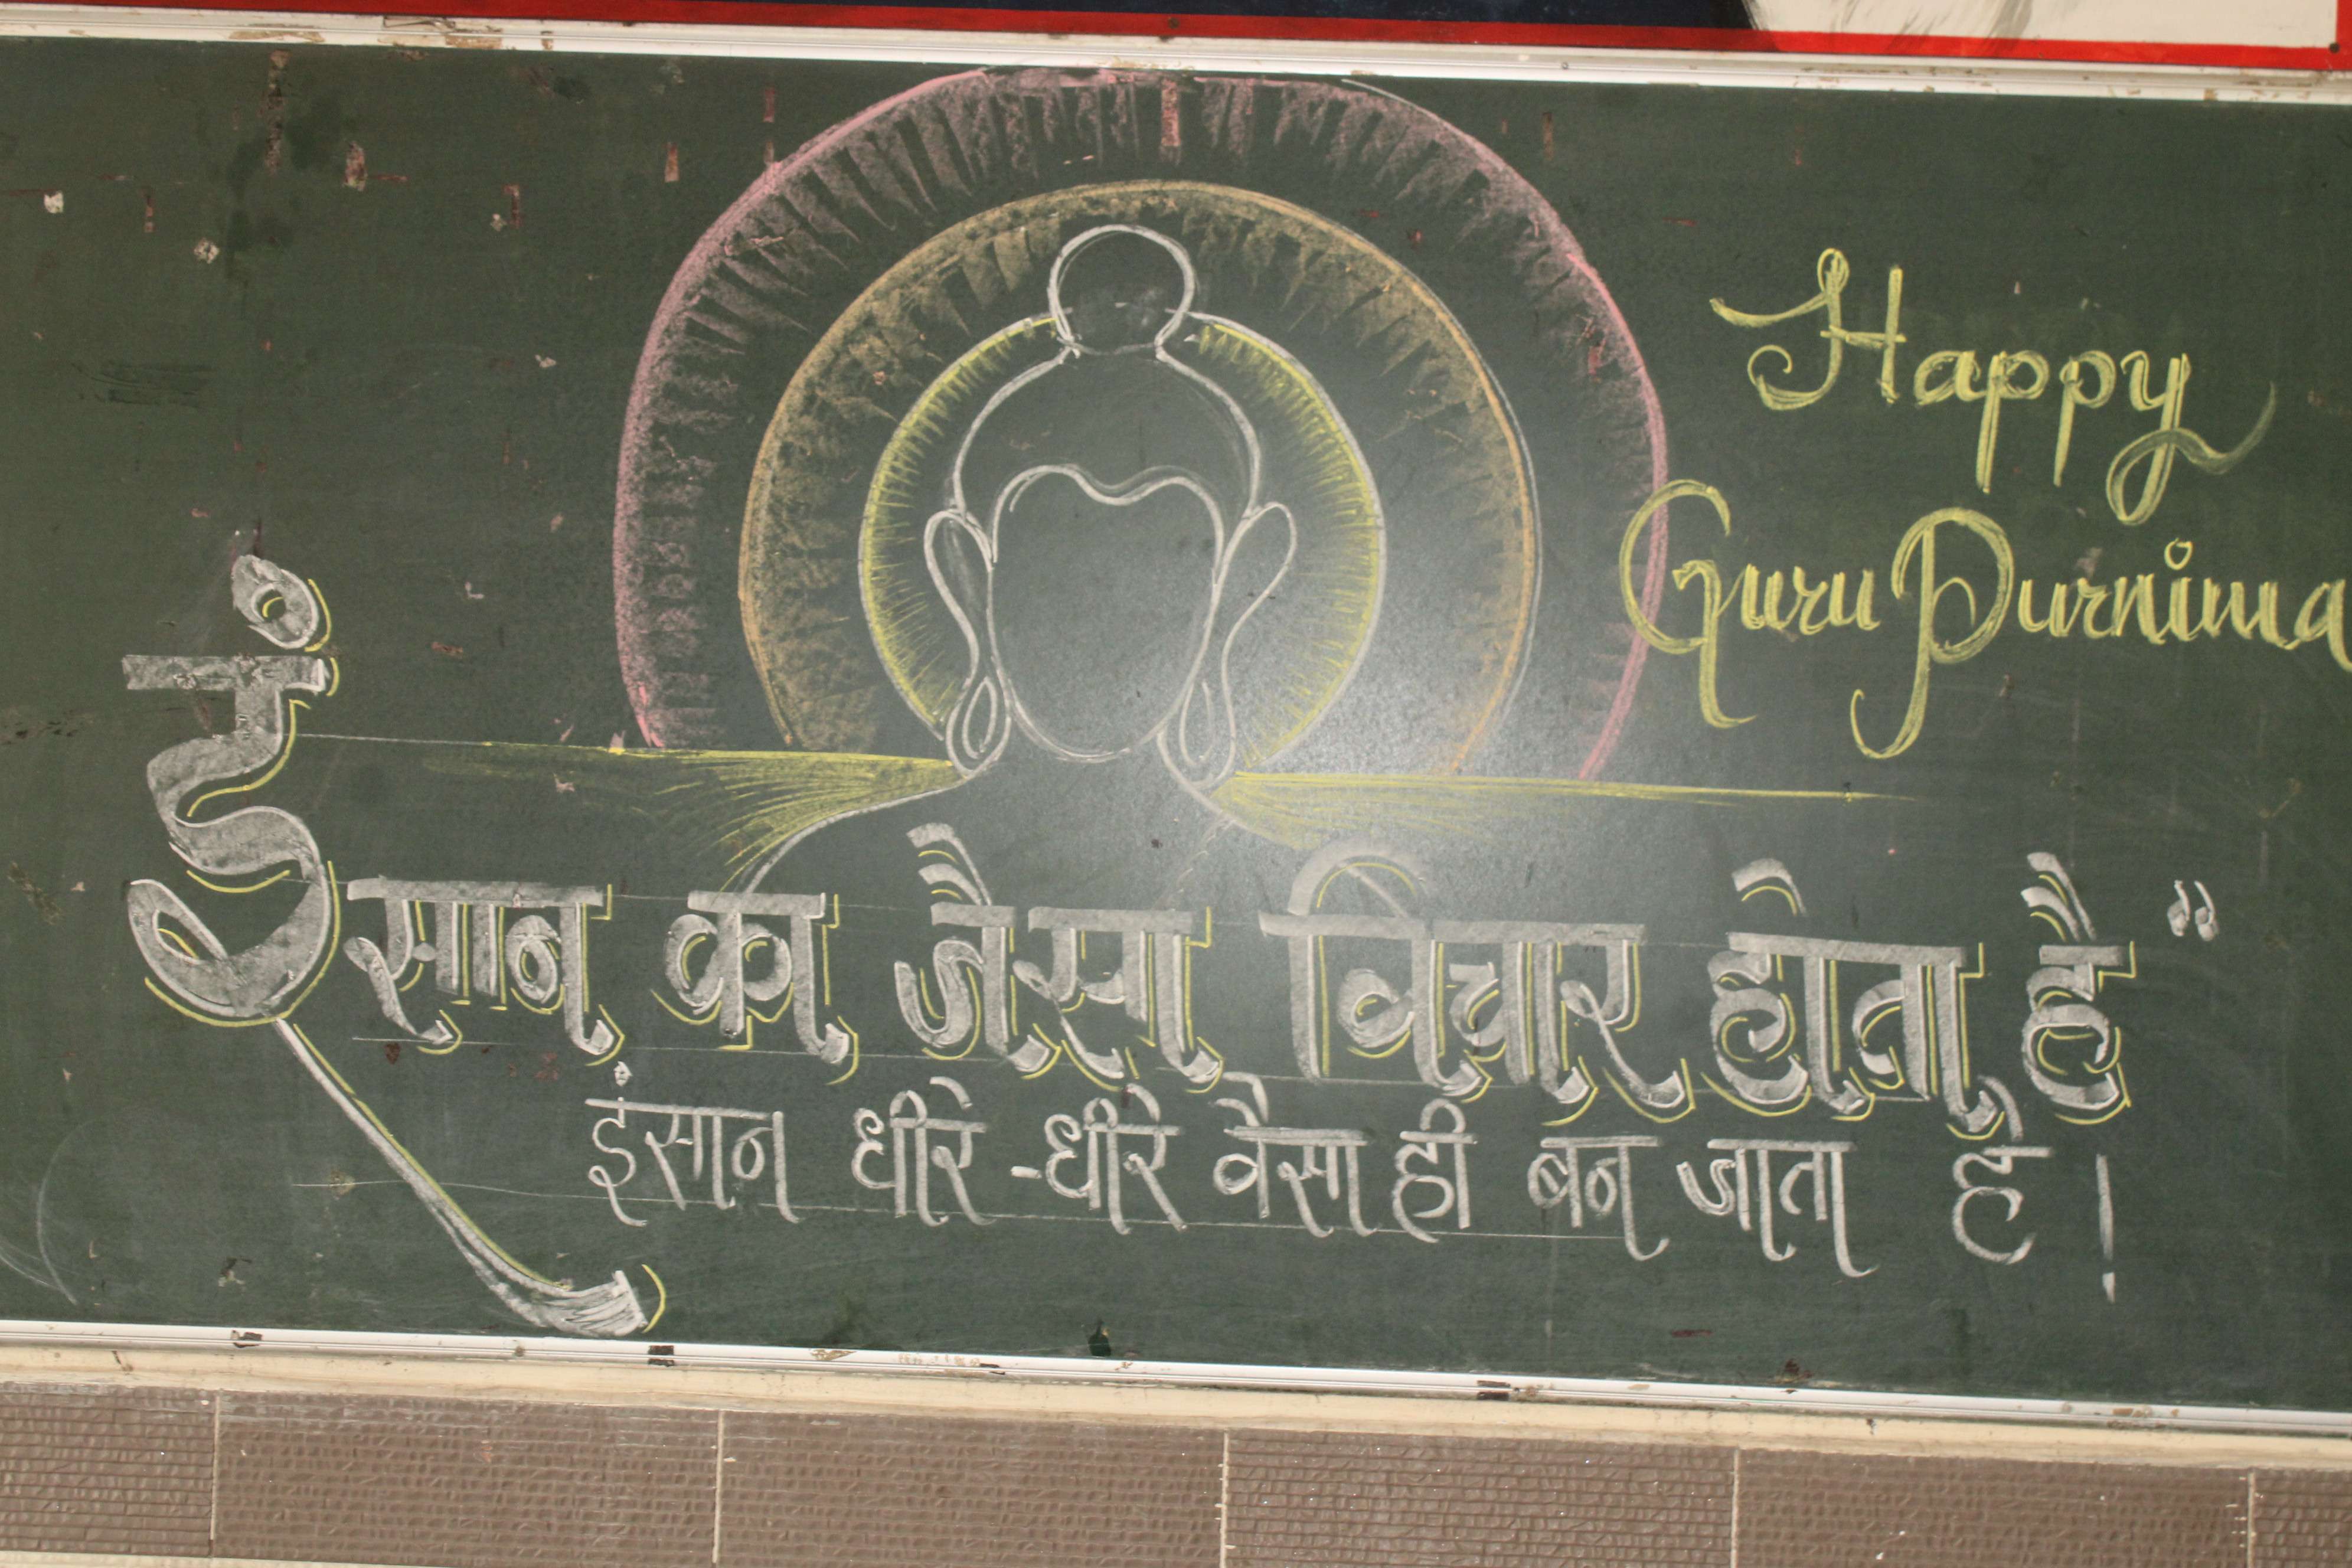 Happy
Guru Purnima
इंसान का जैसा विचार होता है"
इंसान धीरे-धीरे वैसा ही बन जाता है।